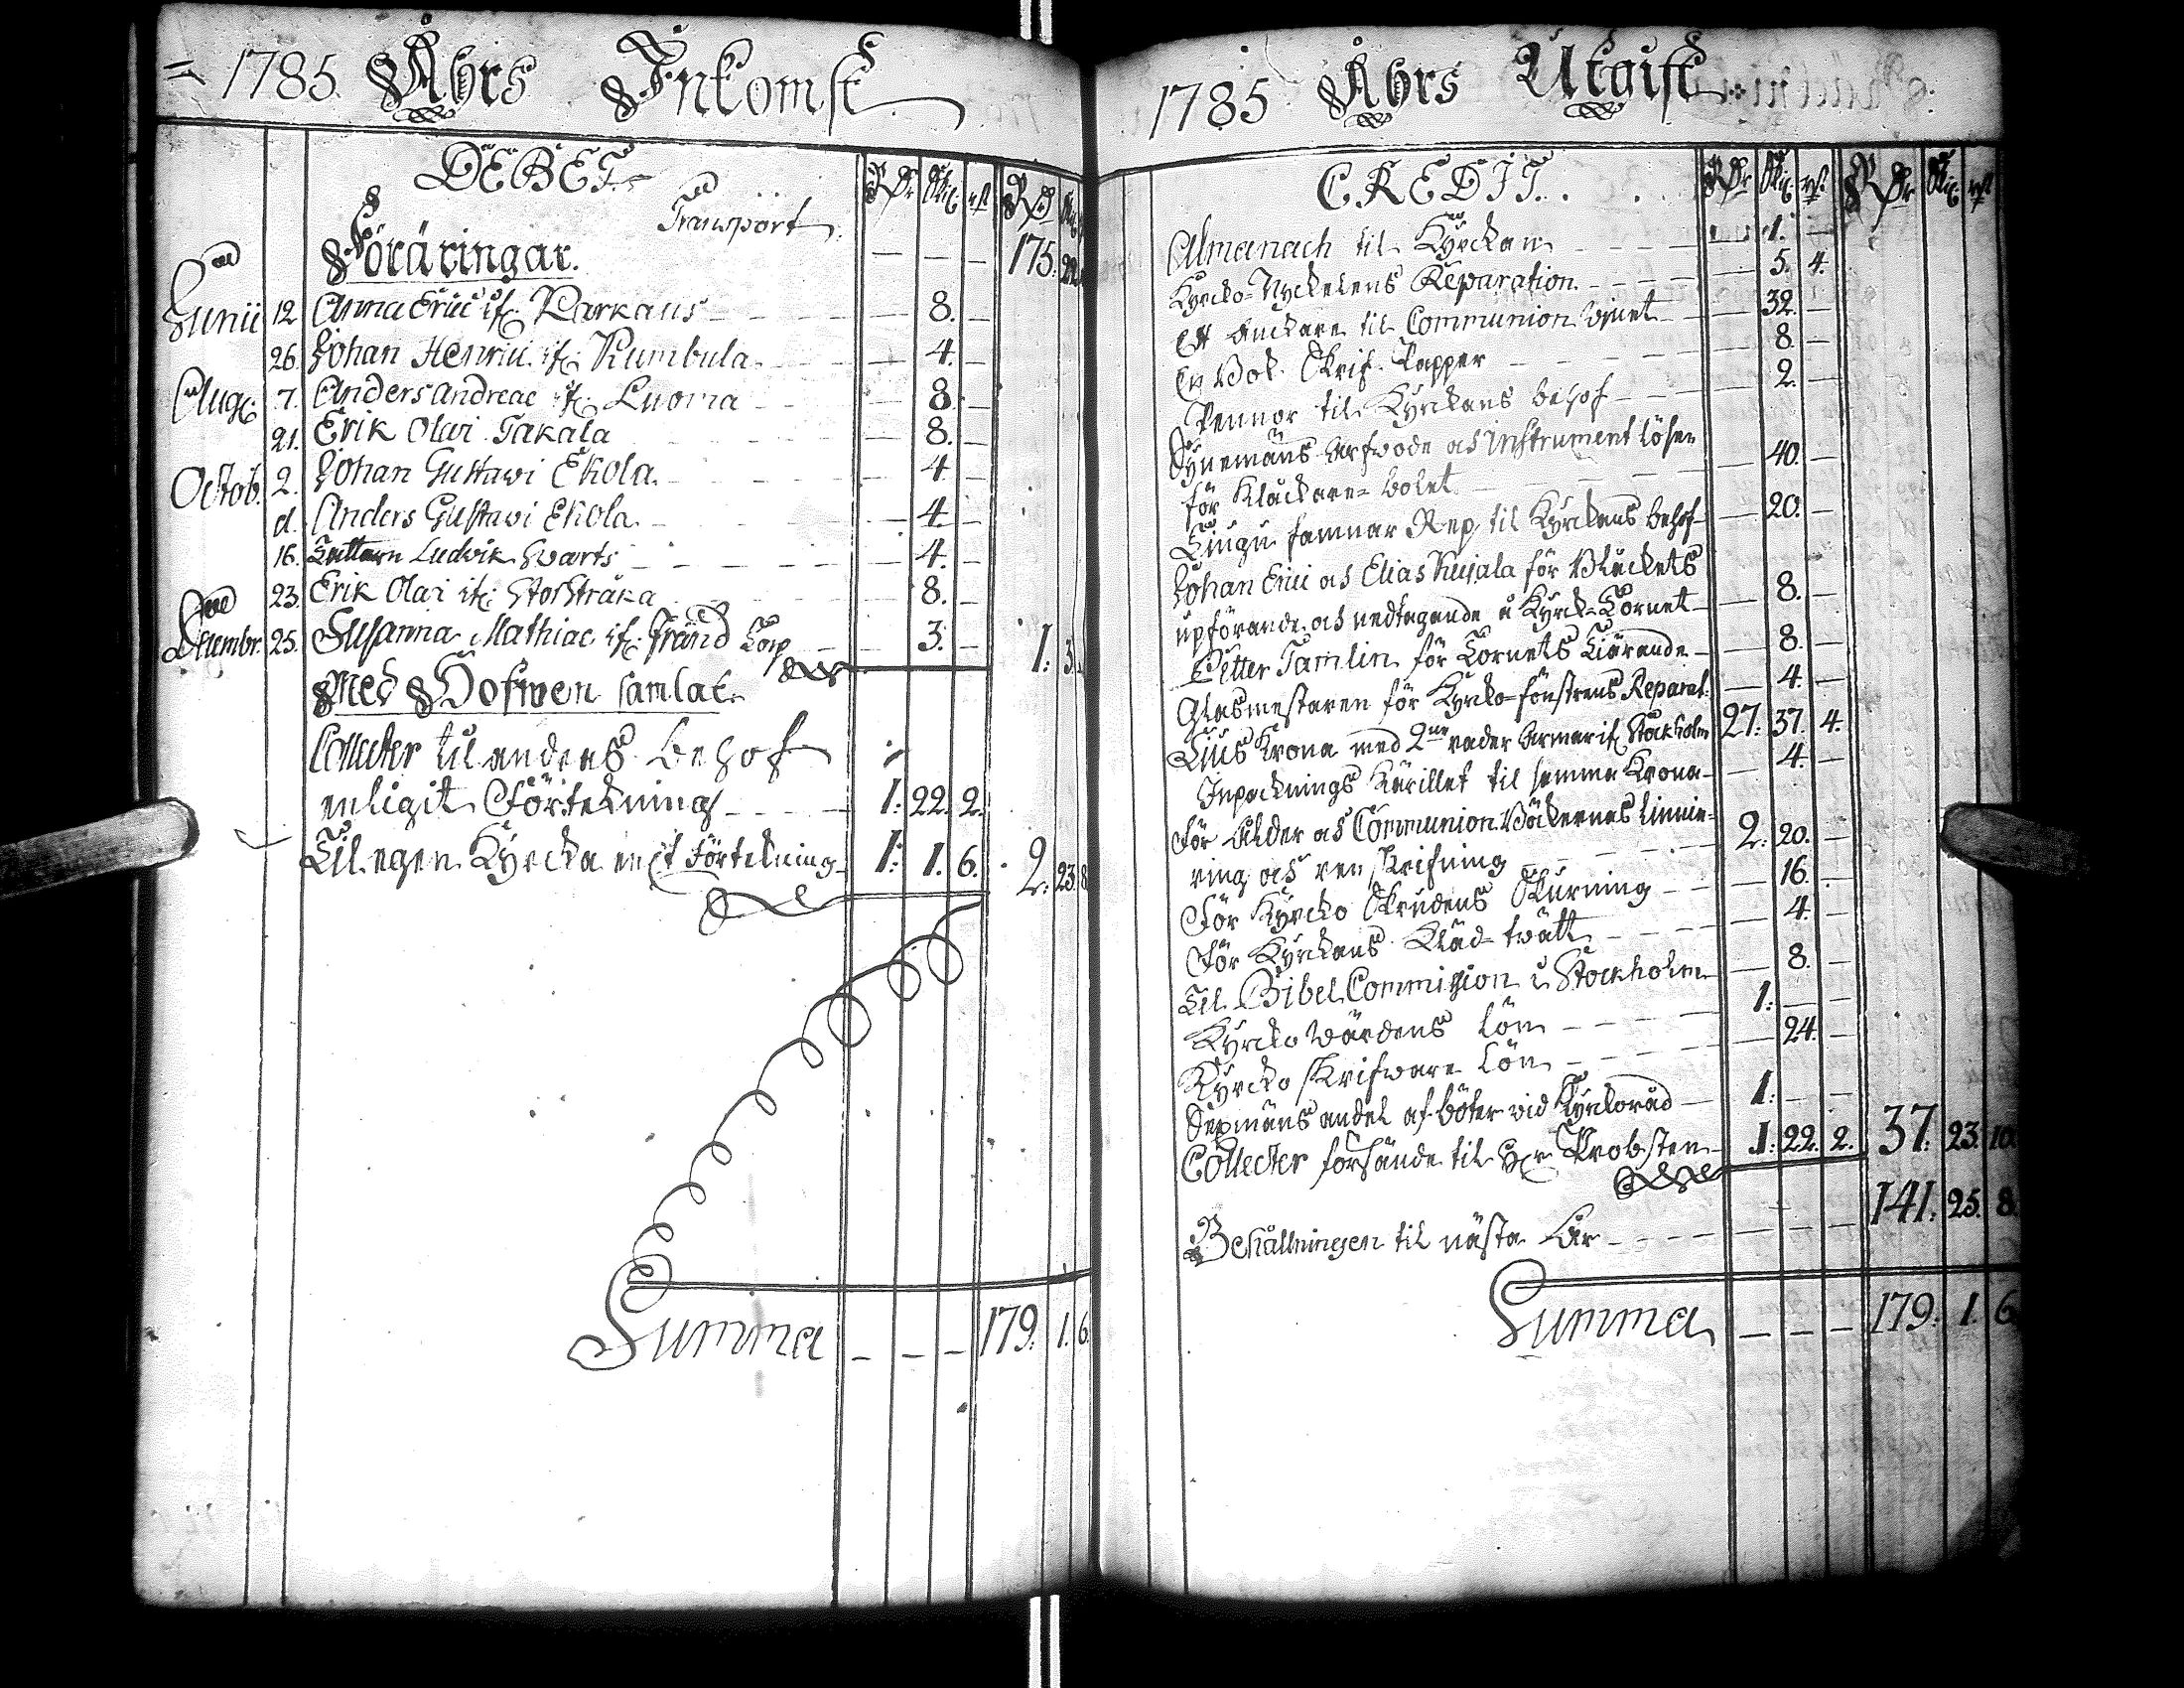 1785 Åhrs Inkomst
DEBET. RDr Skil. rst RDr Skil.
Transport
Föräringar. — — — 175. 22.
Junii 12 Anna Erici if. Parkaus — 8. —
26. Johan Henrici if. Kumbula — 4. —
Aug. 7. Anders Andreae if. Luoma — 8. —
21. Erik Olai Takala — 8. —
Octob. 2. Johan Gustawi Ekola. — 4. —
d. Anders Gustawi Ekola. — 4. —
16. Ludvik Swarts — 4. —
23. Erik Olai if. Storstråka — 8. —
Decembr. 25. Susanna Mathiae if. Fränd Torp — 3. — 1. 3.
Med Håfwen samlat.
Collecter til andras behof
enligit Förtekning 1: 22. 2.
Til egen Kyrcka en. Förtekning 1: 1. 6. 2. 23. 8
Summa — — — 179. 1. 6.
1785 Åhrs Utgift
CREDIT. RDr Skil. rst RDr Skil. rst
Almanach til Kyrckan — 1. —
Kyrcko-Nyckelens Reparation — 5. 4.
Ett Anckare til Communion Vinet — 32. —
En Bok Skrif-Papper — 8. —
Pennor til Kyrckans behof — 2. —
Synemäns Arfwode och Instrument lösen
för Klåckare-bolet — 40. —
Tiugu famnar Rep til Kyrckans behof — 20. —
Johan Erici och Elias Kujala för Bläckets
upförande och nedtagande i Kyrck-Tornet — 8. —
Petter Tamlin för Tornets Tiärande — 8. —
Glasmestaren för Kyrcko-fönstrens Reparat. — 4. —
Lius Krona med 2ne rader Armar if. Stockholm 27. 37. 4.
Inpacknings Kärillet til samma Krona — 4. —
För Ålder och Communion Böckernas linnie-
ring och ren skrifning 2. 20. —
För Kyrcko Skrudens Skurning — 16. —
För Kyrckans Kläd-twätt — 4. —
Til Bibel Commission i Stockholm — 8. —
Kyrcko Wärdens lön 1: — —
Kyrcko skrifware lön — 24. —
Sexmäns andel af böter vid Kyrckoråd 1: — —
Collecter försände til H:r Probsten 1: 22. 2. 37. 23. 10.
Behållningen til nästa Åhr — — — 141. 25. 8.
Summa — — — 179. 1. 6